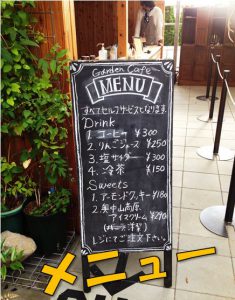 Garden Cafe
MENU
すべてセルフサービスとなります。
Drink
1. コーヒー ¥300
2. りんごジュース ¥250
3. 塩サイダー ¥300
4. 冷茶 ¥150
Sweets
1. アーモンドクッキー ¥180
2. 奥中山高原
アイスクリーム ¥290
レジにてご注文下さい。
メニュー